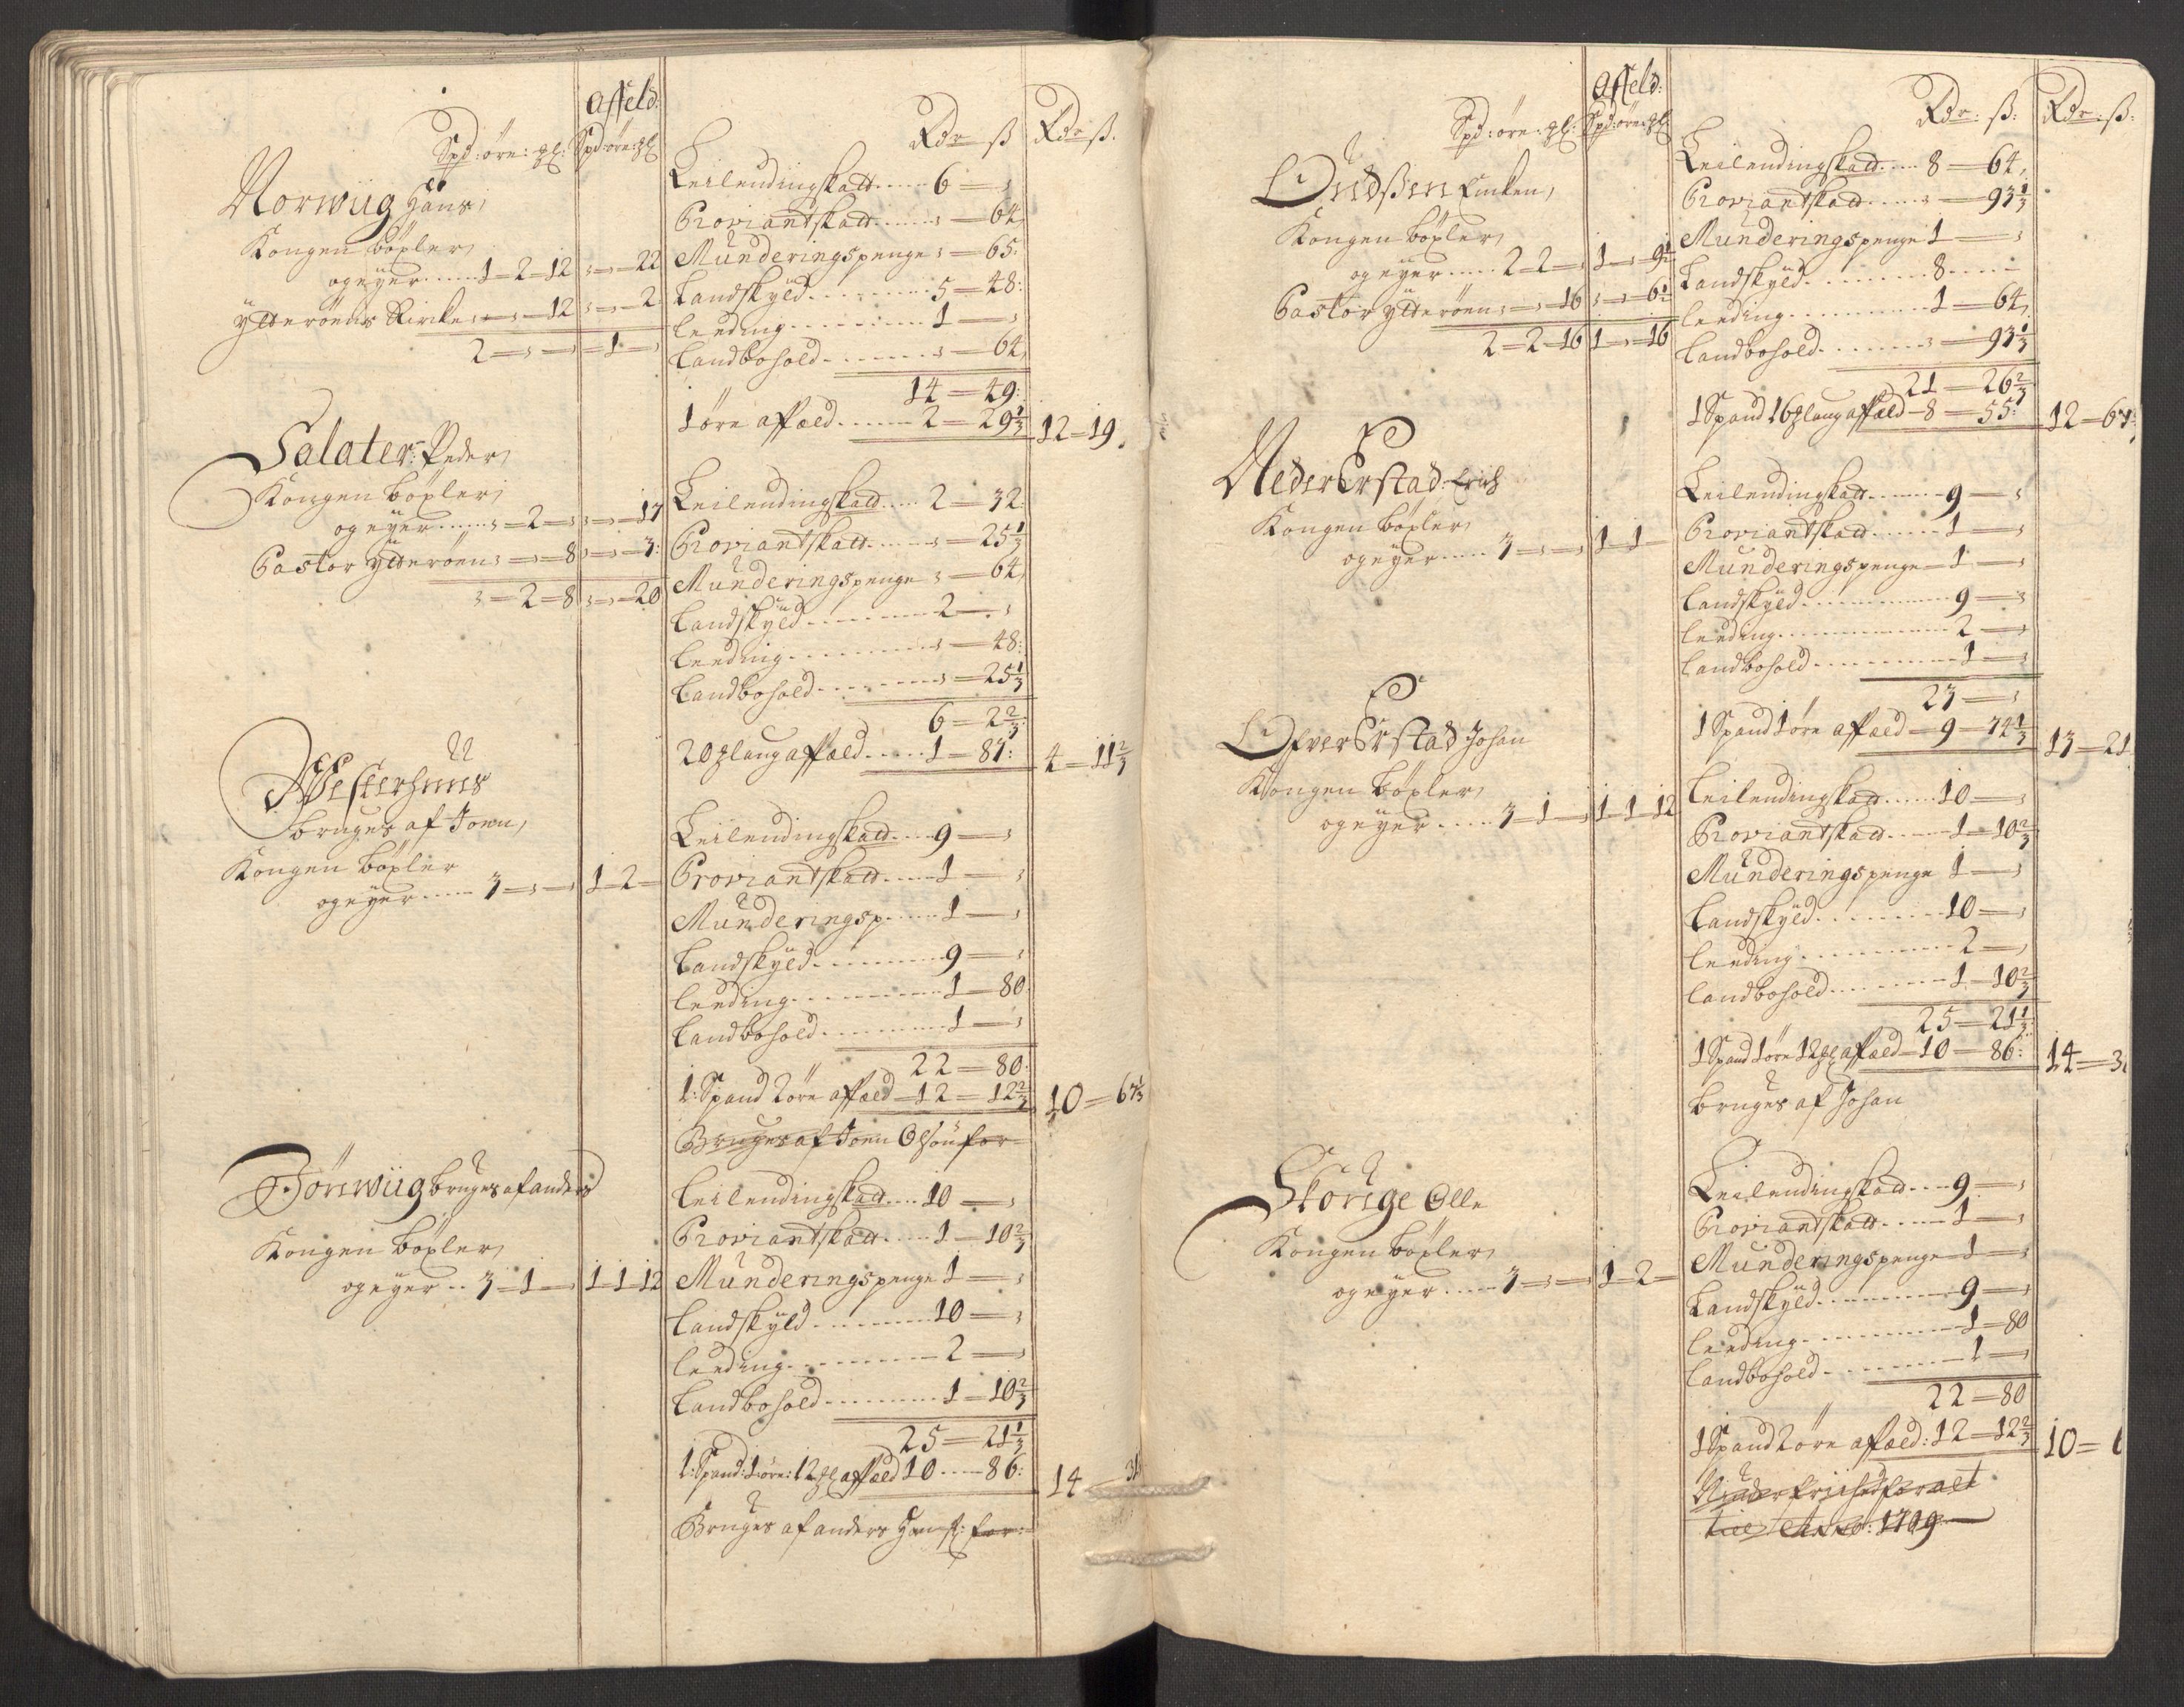 Affeld:
Spd: öre: gl: Spd: öre: gl
Rdr ß Rdr ß.
Norwiig Hans,
Kongen böxler,
og eÿer ..... 1 – 2 – 12 „ – „ – 22
Ÿtteröens Kircke „ – „ – 12 „ – „ – 2
2 – „ – „ – 1 – „
Leilendingskatt ..... 6 – „
Proviantskatt ..... „ – 64
Munderingspenge „ – 65:
Landskÿld ..... 5 – 48:
Leeding ..... 1 – „
Landbohold ..... „ – 64
14 – 49:
1 öre affæld ..... 2 – 29⅓ 12 – 19.
Salater: Peder,
Kongen böxler,
og eÿer ..... „ – 2 – „ „ – „ – 17
Pastor Ÿtteröen „ – „ – 8 „ – „ – 3:
„ – 2 – 8 „ – „ – 20
Leilendingskatt .... 2 – 32:
Proviantskatt ..... „ – 25⅓
Munderingspenge „ – 64
Landskÿld ..... 2 – „
Leeding ..... „ – 48:
Landbohold ..... „ – 25⅓
6 – 2⅔:
20 gl laug affæld ..... 1 – 87: 4 – 11⅔
Westerhuus
bruges af Joen,
Kongen böxler
og eÿer ..... 3 – „ – „ 1 – 2 –
Leilendingskatt .... 9 – „
Proviantskatt ..... 1 – „
Munderingsp ..... 1 – „
Landskÿld ..... 9 – „
Leeding ..... 1 – 80
Landbohold ..... 1 – „
22 – 80
1: Spand 2 öre affæld – 12 – 12⅔ 10 – 67⅓
Bruges af Joen Olsön for
Börwiig bruges af anders
Kongen böxler,
og eÿer .. 3 – 1 – „ 1 – 1 – 12
Leilendingskatt .... 10 – „
Proviantskatt ..... 1 – 10⅔
Munderingspenge 1 – „
Landskÿld ..... 10 – „
Leeding ..... 2 – „
Landbohold ..... 1 – 10⅔
25 – 21⅓
1: Spand: 1 öre: 12 gl affæld 10 .... 86: 14 – 31
Bruges af anders for:
Affeld:
Spd: öre: gl: Spd: öre: gl
Rdr: ß: Rdr: ß:
Enken,
Kongen böxler,
og eÿer .... 2 – 2 – „ 1 – „ – 9½
Pastor Ÿtteröen „ – „ – 16 „ – „ – 6½
2 – 2 – 16 1 – „ – 16
Leilendingskatt .... 8 – 64,
Proviantskatt ..... „ – 93⅓
Munderingspenge 1 – „
Landskÿld ..... 8 – –
Leeding ..... 1 – 64
Landbohold ..... „ – 93⅓
21 – 26⅔
1 Spand 16 gl laug affæld – 8 – 55: 12 – 67⅔
Neder Erstad Erich
Kongen böxler,
og eÿer .... 3 – „ – „ 1 – 1 –
Leilendingskatt ..... 9 – „
Proviantskatt ..... 1 – „
Munderingspenge – 1 – „
Landskÿld ..... 9 – „
Leeding ..... 2 – „
Landbohold ..... 1 – „
23 – „
1 Spand 1 öre affæld – 9 – 74⅓ 13 – 21
Öfver Erstad Johan
Kongen böxler,
og eÿer ..... 3 – 1 – „ 1 – 1 – 12
Leilendingskatt ..... 10 – „
Proviantskatt ..... 1 – 10⅔
Munderingspenge 1 – „
Landskÿld ..... 10 – „
Leeding ..... 2 – „
Landbohold ..... 1 – 10⅔
25 – 21⅓
1 Spand 1 öre 12 gl affæld – 10 – 86: 14 – 3
bruges af Johan
Skorige Olle
Kongen böxler,
og eÿer .... 3 – „ – „ 1 – 2 –
Leilendingskatt .... 9 – „
Proviantskatt ..... 1 – „
Munderingspenge – 1 – „
Landskÿld ..... 9 – „
Leeding ..... 1 – 80
Landbohold ..... 1 – „
22 – 80
1 Spand 2 öre affæld: 12 – 12⅔ 10 – 6
Niuder friihed for alt
till Anno: 1709